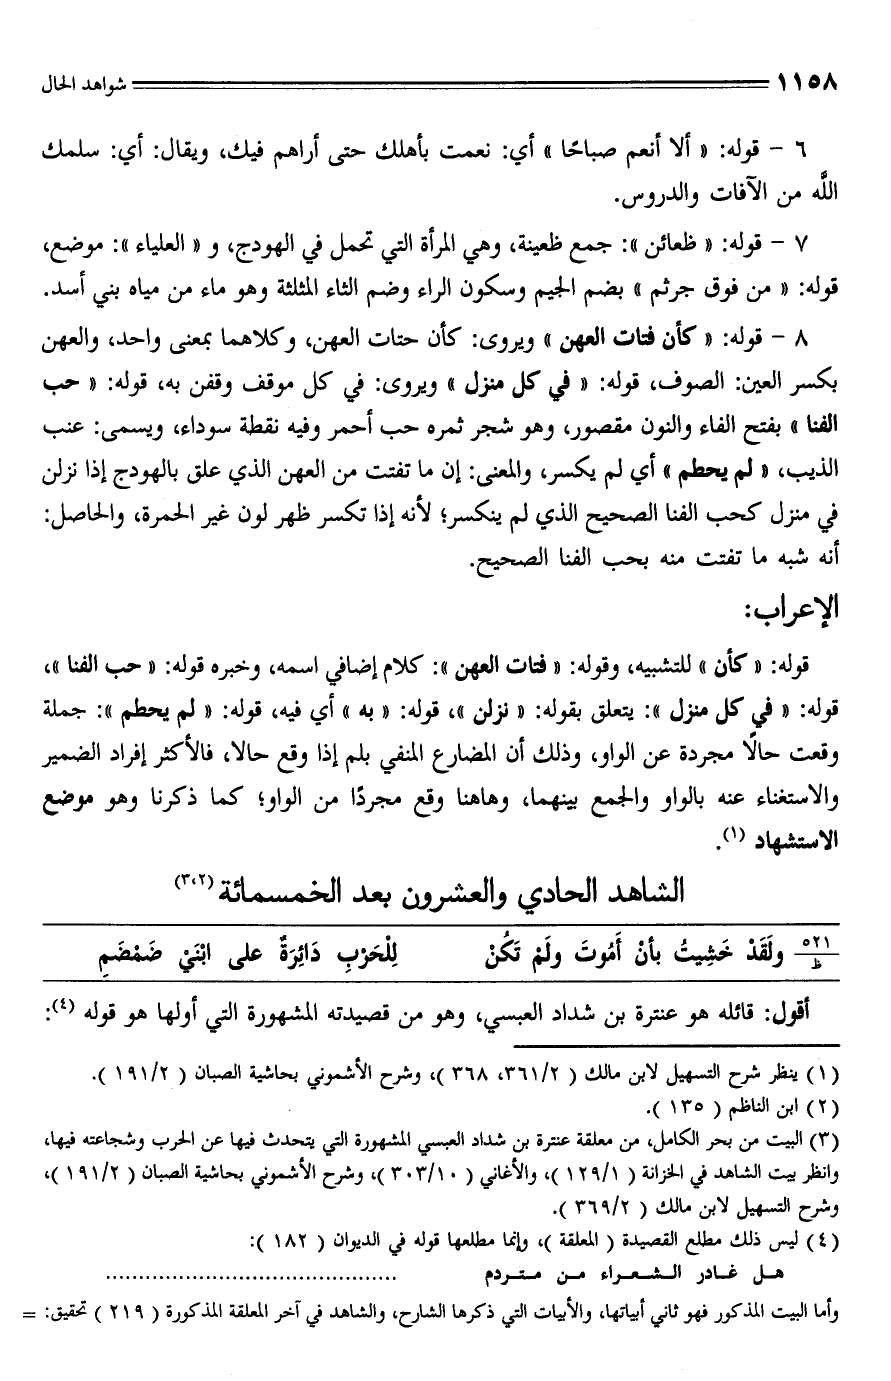 ١١٥٨ شواهد الحال
٦ - قوله: « ألا أنعم صباحًا » أي: نعمت بأهلك حتى أراهم فيك، ويقال: أي: سلمك
اللَّه من الآفات والدروس.
٧ - قوله: « ظعائن »: جمع ظعينة، وهي المرأة التي تحمل في الهودج، و « العلياء »: موضع،
قوله: « من فوق جرثم » بضم الجيم وسكون الراء وضم الثاء المثلثة وهو ماء من مياه بني أسد.
٨ - قوله: « كأن فتات العهن » ويروى: كأن حتات العهن، وكلاهما بمعنى واحد، والعهن
بكسر العين: الصوف، قوله: « في كل منزل » ويروى: في كل موقف وقفن به، قوله: « حب
الفنا » بفتح الفاء والنون مقصور، وهو شجر ثمره حب أحمر وفيه نقطة سوداء، ويسمى: عنب
الذيب، « لم يحطم » أي لم يكسر، والمعنى: إن ما تفتت من العهن الذي علق بالهودج إذا نزلن
في منزل كحب الفنا الصحيح الذي لم ينكسر؛ لأنه إذا تكسر ظهر لون غير الحمرة، والحاصل:
أنه شبه ما تفتت منه بحب الفنا الصحيح.
الإعراب:
قوله: « كأن » للتشبيه، وقوله: « فتات العهن »: كلام إضافي اسمه، وخبره قوله: « حب الفنا »،
قوله: « في كل منزل »: يتعلق بقوله: « نزلن »، قوله: « به » أي فيه، قوله: « لم يحطم »: جملة
وقعت حالًا مجردة عن الواو، وذلك أن المضارع المنفي بلم إذا وقع حالا، فالأكثر إفراد الضمير
والاستغناء عنه بالواو والجمع بينهما، وهاهنا وقع مجردًا من الواو؛ كما ذكرنا وهو موضع
الاستشهاد (١).
الشاهد الحادي والعشرون بعد الخمسمائة (٣،٢)
٥٢١/ظ ولَقَدْ خَشِيتُ بأنْ أَمُوتَ ولَمْ تَكُنْ لِلْحَرْبِ دَائِرَةٌ على ابْنَيْ ضَمْضَمِ
أقول: قائله هو عنترة بن شداد العبسي، وهو من قصيدته المشهورة التي أولها هو قوله (٤):
(١) ينظر شرح التسهيل لابن مالك ( ٣٦١/٢، ٣٦٨ )، وشرح الأشموني بحاشية الصبان ( ١٩١/٢ ).
(٢) ابن الناظم ( ١٣٥ ).
(٣) البيت من بحر الكامل، من معلقة عنترة بن شداد العبسي المشهورة التي يتحدث فيها عن الحرب وشجاعته فيها،
وانظر بيت الشاهد في الخزانة ( ١٢٩/١ )، والأغاني ( ٣٠٣/١٠ )، وشرح الأشموني بحاشية الصبان ( ١٩١/٢ )،
وشرح التسهيل لابن مالك ( ٣٦٩/٢ ).
(٤) ليس ذلك مطلع القصيدة ( المعلقة )، وإنما مطلعها قوله في الديوان ( ١٨٢ ):
هـل غـادر الـشـعـراء مـن مـتـردم ..........................................
وأما البيت المذكور فهو ثاني أبياتها، والأبيات التي ذكرها الشارح، والشاهد في آخر المعلقة المذكورة ( ٢١٩ ) تحقيق: =